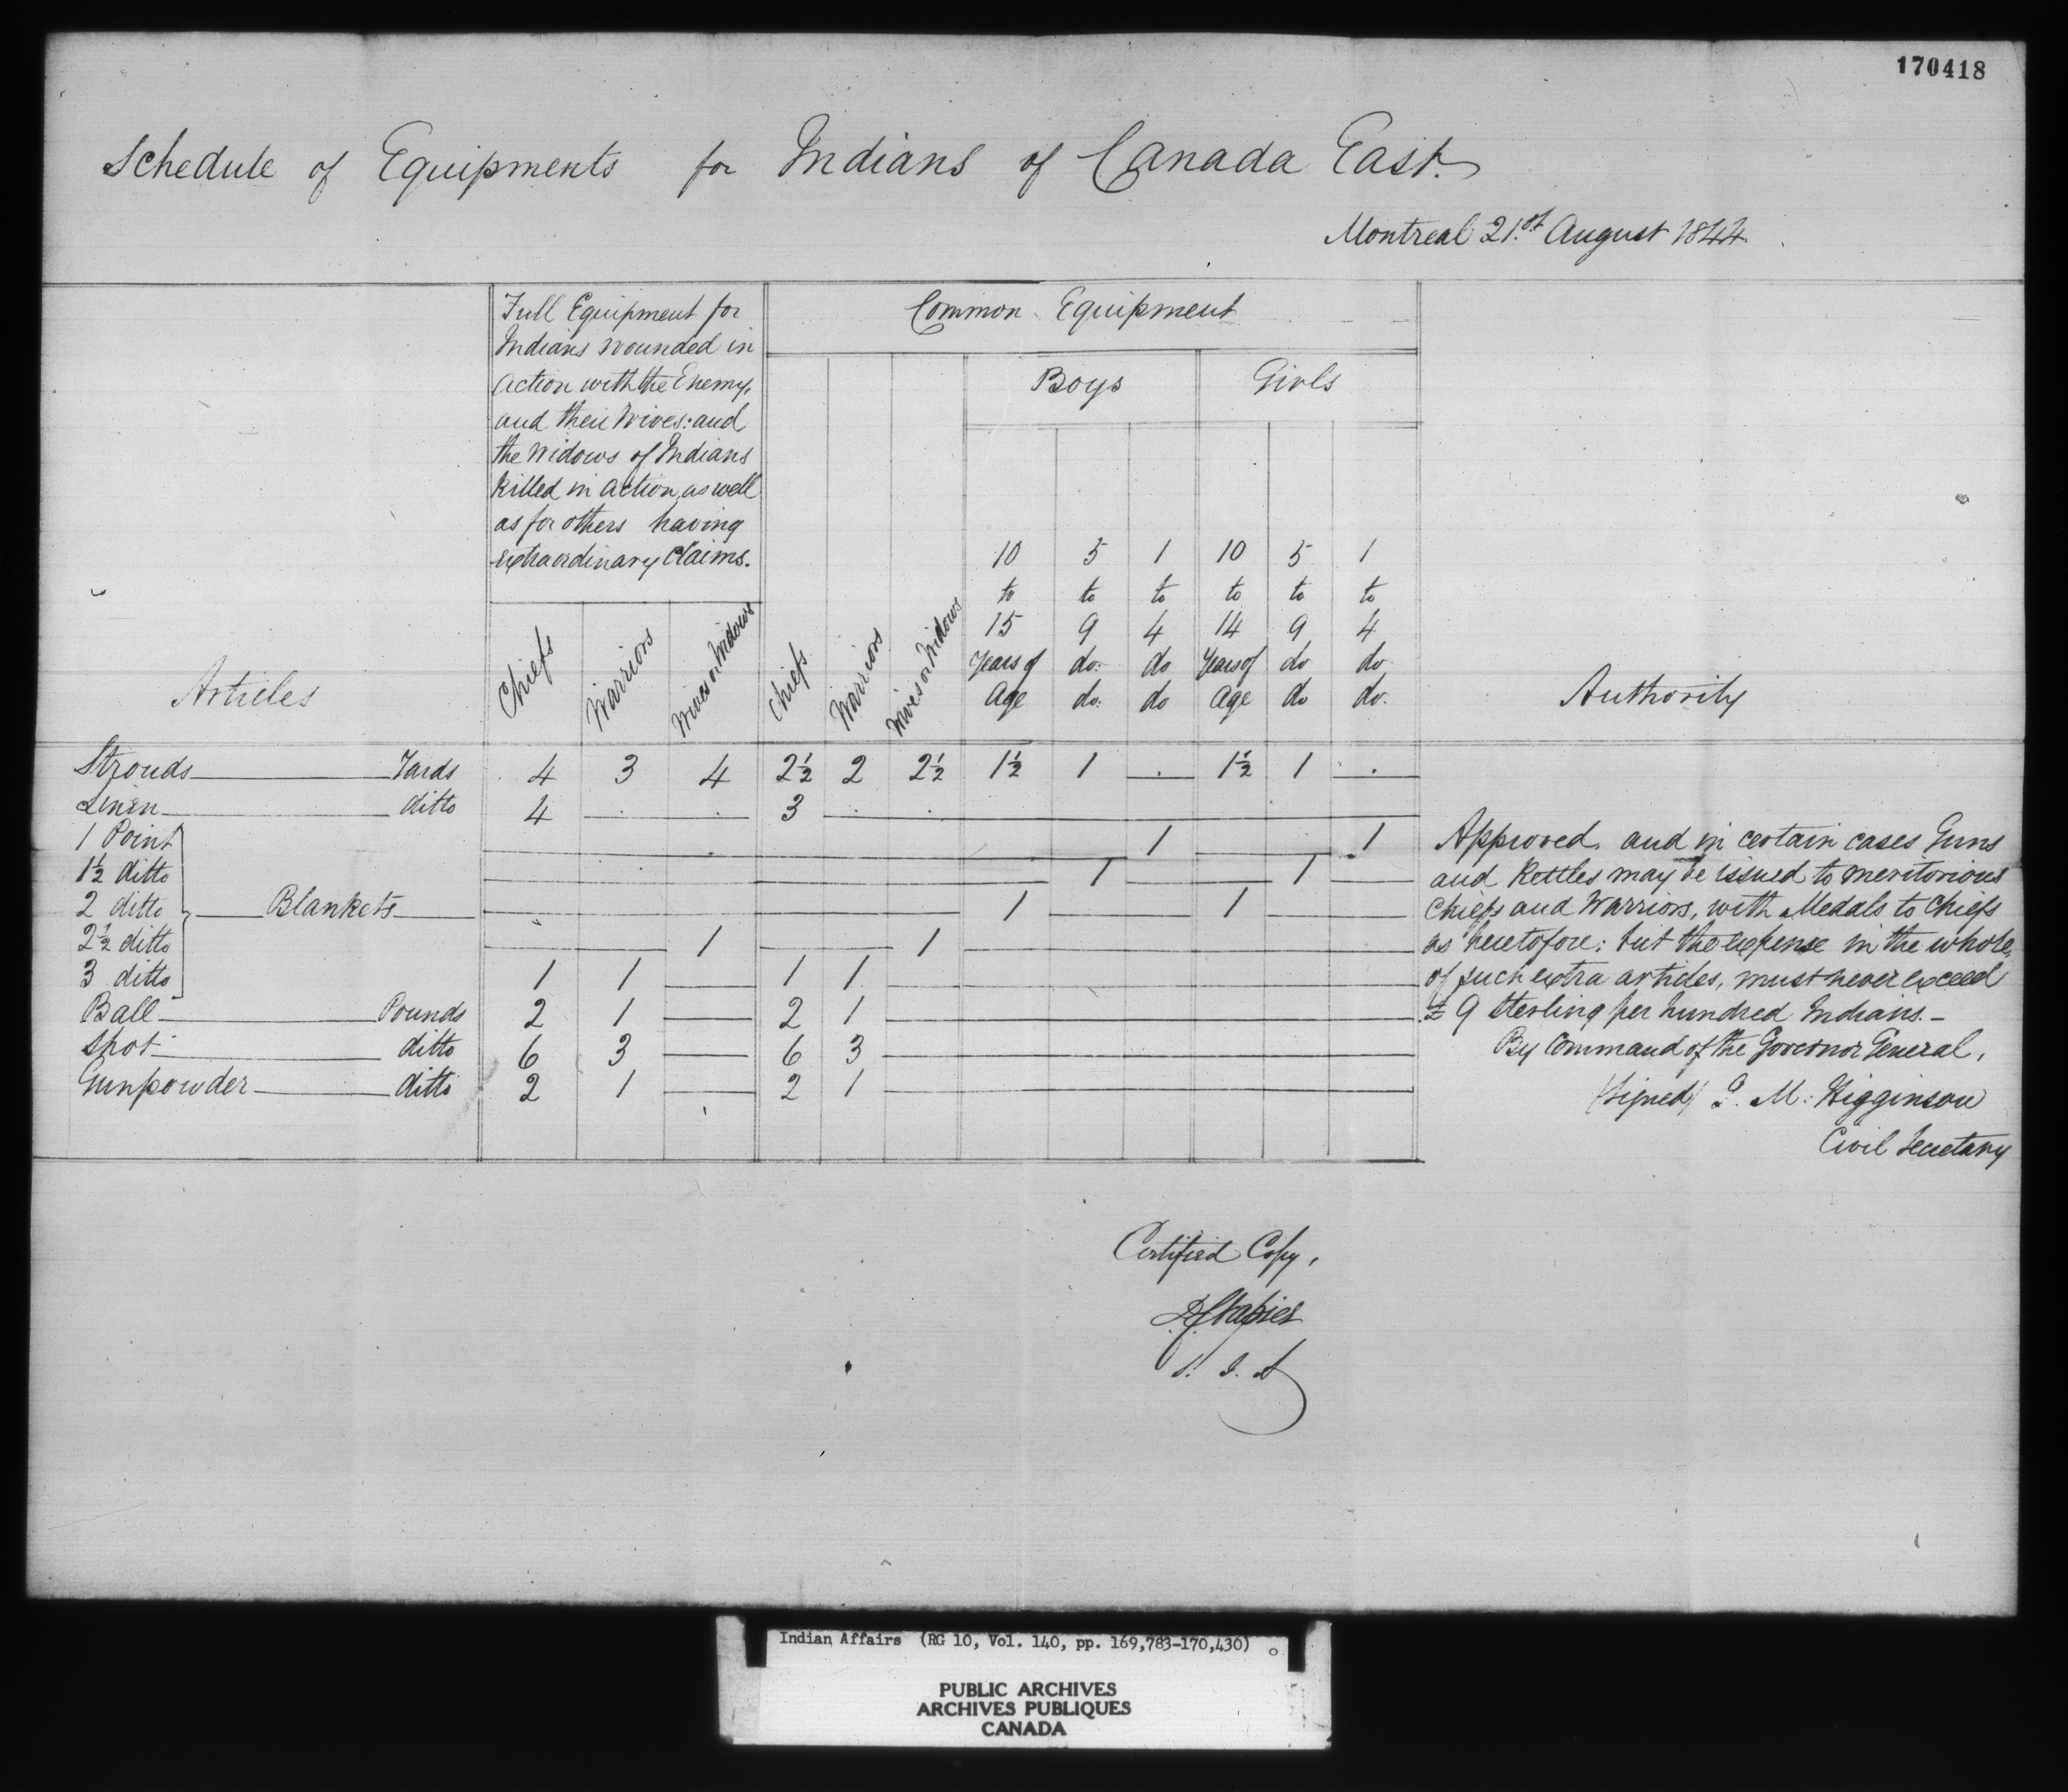 170418
Schedule of Equipments for Indians of Canada East.
Montreal 21.st August 1844.
Full Equipment for
Indians wounded in
action with the Enemy,
and their Wives: and
the Widows of Indians
killed in action, as well
as for others having
extraordinary Claims.
Common Equipment
Boys Girls
10 5 1 10 5 1
to to to to to to
15 9 4 14 9 4
Years of do: do Years of do do
Age do: do age do do:
Articles Chiefs Warriors Wives or Widows Chiefs Warriors Wives or Widows Authority
Strouds Yards 4 3 4 2½ 2 2½ 1½ 1 . 1½ 1 .
Linen ditto 4 3
1 Point 1 1
1½ ditto 1 1
2 ditto Blankets 1 1
2½ ditto 1 1
3 ditto 1 1 1 1
Ball Pounds 2 1 2 1
Shot ditto 6 3 6 3
Gunpowder ditto 2 1 2 1
Approved, and in certain cases Guns
and Kettles may be issued to meritorious
Chiefs and Warriors, with Medals to Chiefs
as heretofore: but the expense in the whole,
of such extra articles, must never exceed
£9 Sterling per hundred Indians. –
By Command of the Governor General,
(Signed) J. M: Higginson
Civil Secretary
Certified Copy,
D C Napier
S. I. A
Indian Affairs (RG 10, Vol. 140, pp. 169,783-170,430)
PUBLIC ARCHIVES
ARCHIVES PUBLIQUES
CANADA